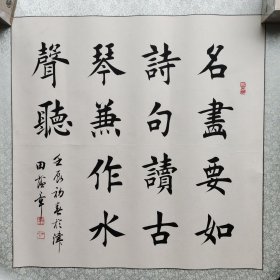 名畫要如
詩句讀古
琴蒹作水
聲聽
壬辰初春於津
田蘊章